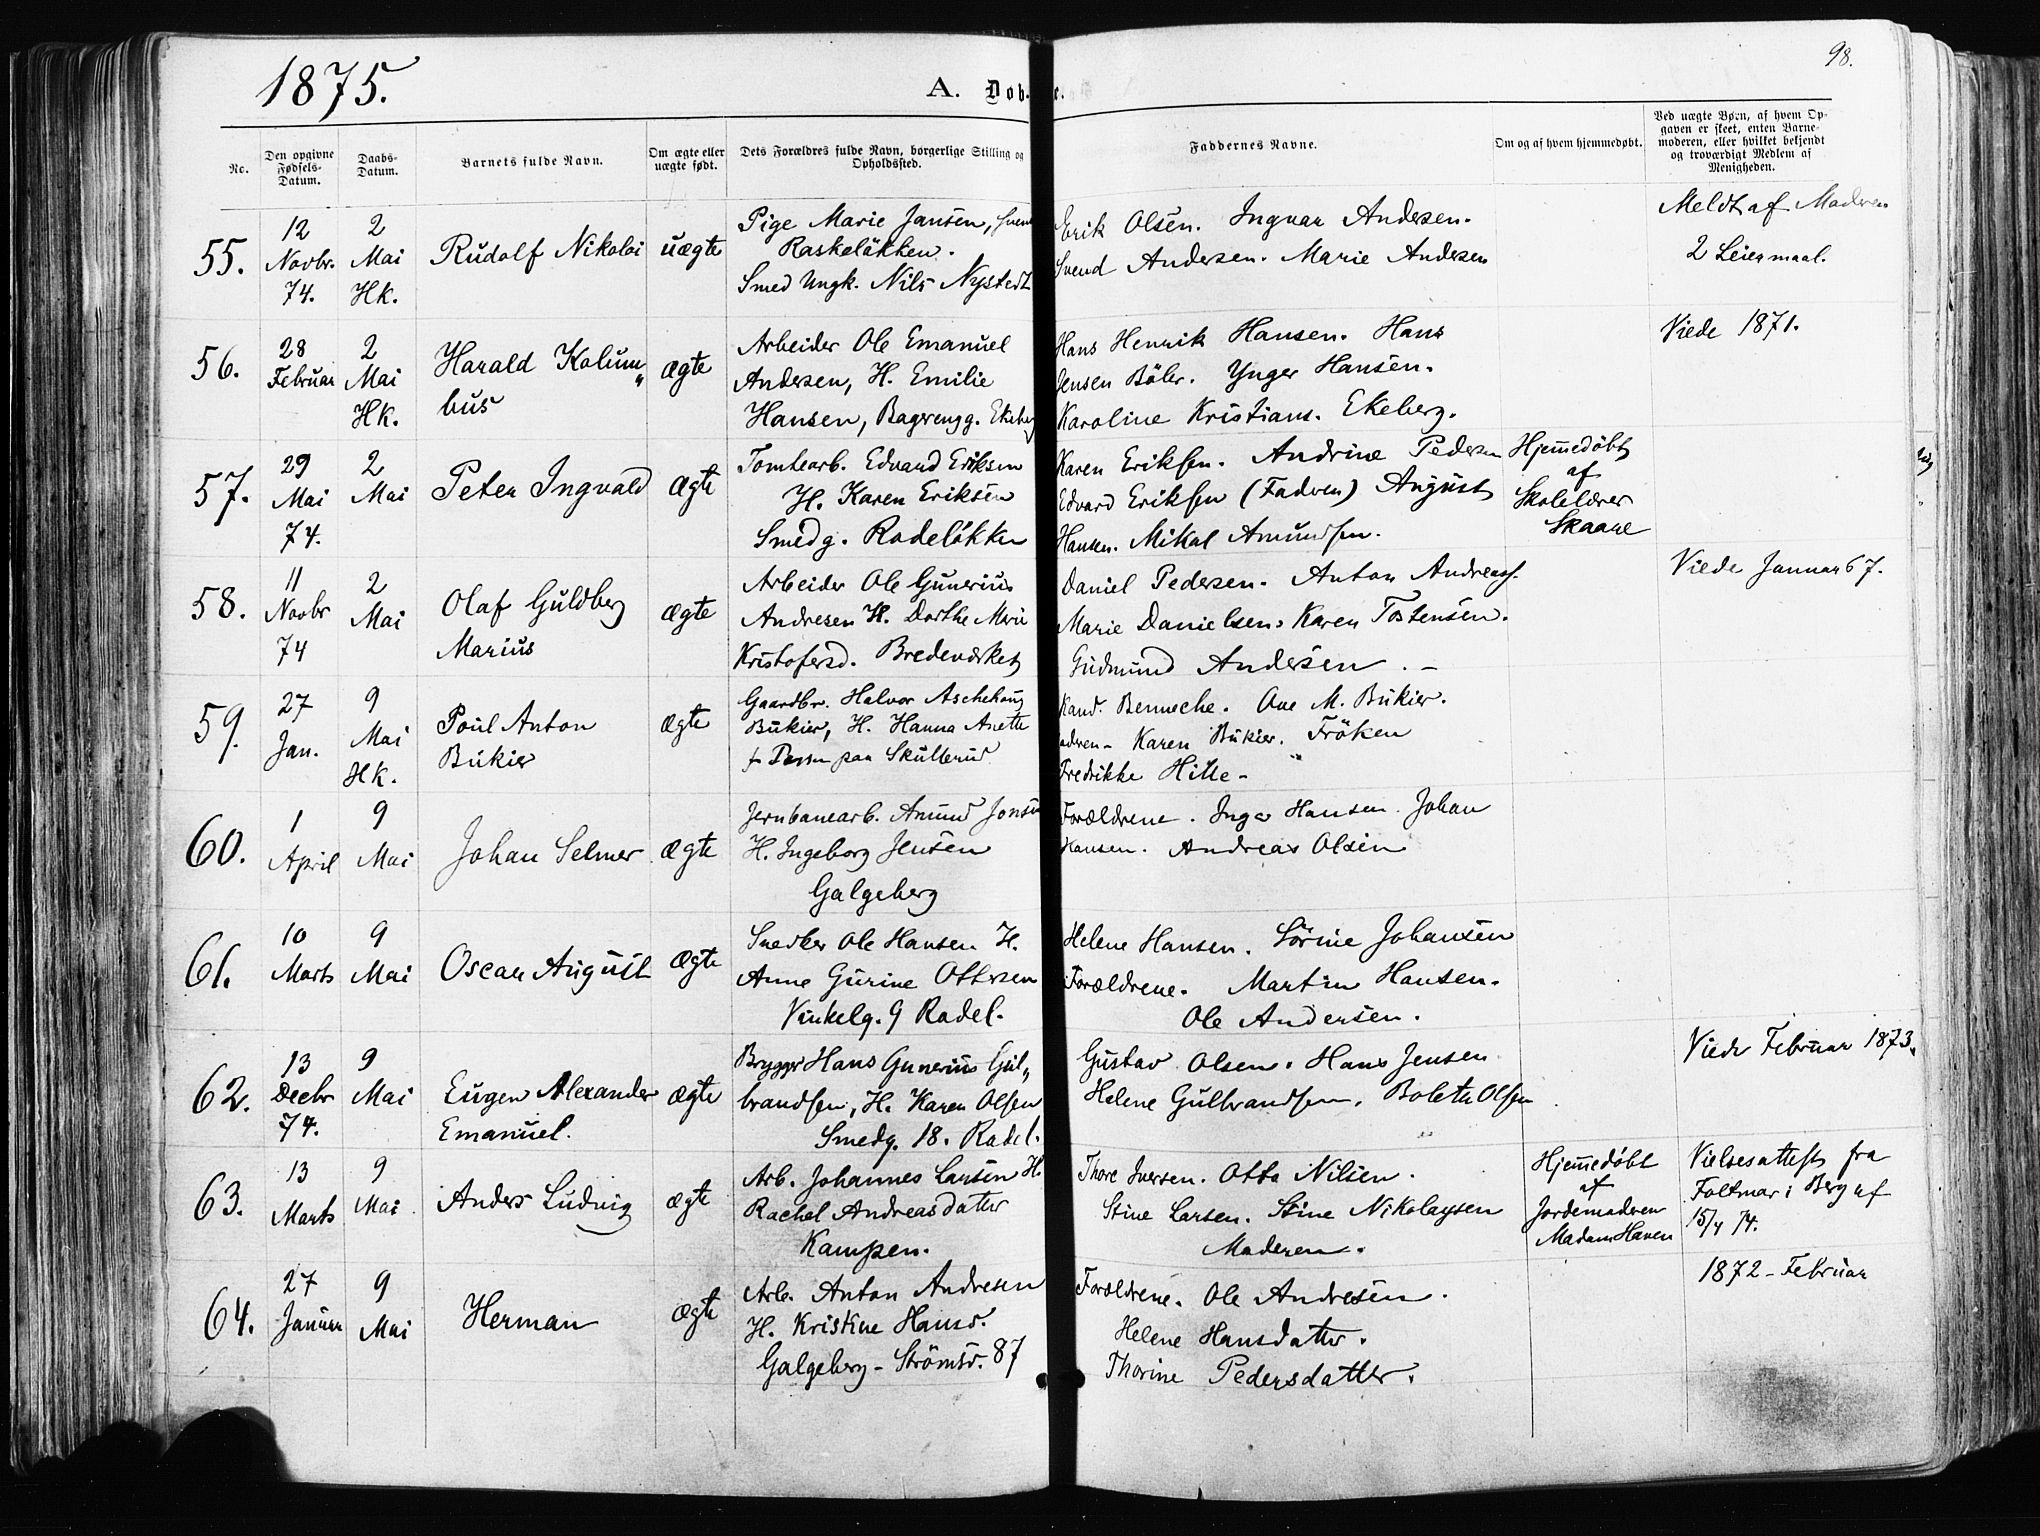 1875.
A. Dob. e.
98.
No.
Den opgivne Fødsels-Datum.
Daabs-Datum.
Barnets fulde Navn.
Om ægte eller uægte født.
Dets Forældres fulde Navn, borgerlige Stilling og Opholdssted.
Faddernes Navne.
Om og af hvem hjemmedøbt.
Ved uægte Børn, af hvem Opgaven er skeet, enten Barnemoderen, eller hvilket bekjendt og troværdigt Medlem af Menigheden.
55.
12 Novbr. 74.
2 Mai Hk.
Rudolf Nikolai
uægte
Pige Marie Jansen,
Raskeløkken.
Smed Ungk. Nils Nystedt
Erik Olsen. Ingvar Andersen.
Svend Andersen. Marie Andersen
Meldt af Moderen
2 Leiermaal.
56.
28 Februar
2 Mai Hk.
Harald Kolum„
bus
ægte
Arbeider Ole Emanuel
Andersen, H. Emilie
Hansen, Bagrengg. Ekeberg
Hans Henrik Hansen. Hans
Jensen Böler. Ynger Hansen.
Karoline Kristians. Ekeberg.
Viede 1871.
57.
29 Mai 74.
2 Mai
Peter Ingvald
ægte
Tomtearb. Edvard Eriksen
H. Karen Eriksen
Smedg. Rodeløkken
Karen Eriksen. Andrine Pedersen
Edvard Eriksen (Fadren) August
Hansen. Mikal Amundsen.
Hjemmedøbt
af
Skolelærer
Skaare
58.
11 Novbr 74
2 Mai
Olaf Guldberg
Marius
ægte
Arbeider Ole Gunerius
Andresen H. Dorthe Marie
Kristofersd. Bredeværket
Daniel Pedersen. Anton Andreass.
Marie Danielsen. Karen Tostensen.
Gudmund Andersen. –
Viede Januar 67.
59.
27 Jan.
9 Mai Hk.
Poul Anton
Bukier
ægte
Gaardbr. Halvor Aschehoug
Bukier, H. Hanna Anette
paa Skullerud
Kand. Benneche. Ove M. Bukier.
Karen Bukier. Fröken
Fredrikke Hille –
60.
1 April
9 Mai
Johan Selmer
ægte
Jernbanearb. Amund Jonsen
H. Ingeborg Jensen
Galgeberg
Forældrene. Inga Hansen. Johan
Hansen. Andreas Olsen
61.
10 Marts
9 Mai
Oscar August
ægte
Snedker Ole Hansen H.
Anne Gurine Ottersen
Vinkelg. 9 Rodel.
Helene Hansen. Sörine Johansen
Forældrene. Martin Hansen.
Ole Andersen.
62.
13 Decbr 74.
9 Mai
Eugen Alexander
Emanuel.
ægte
Brygger Hans Gunerius Gul„
brandsen, H. Karen Olsen
Smedg. 18. Rodel.
Gustav Olsen. Hans Jensen
Helene Gulbrandsen. Bolette Olsen
Viede Februar 1873.
63.
13 Marts
9 Mai
Anders Ludvig
ægte
Arb. Johannes Larsen H.
Rachel Andreasdatter
Kampen.
Thore Iversen. Otto Nilsen.
Stine Larsen. Stine Nikolaysen
Moderen.
Hjemmedøbt
af
Jordemoderen
Madam Haven
Vielsesattest fra
i Berg af
15/4 74.
64.
27 Januar
9 Mai
Herman
ægte
Arb. Anton Andresen
H. Kristine Hansd.
Galgeberg – Strömsv. 87
Forældrene. Ole Andresen.
Helene Hansdatter.
Thorine Pedersdatter.
1872 – Februar